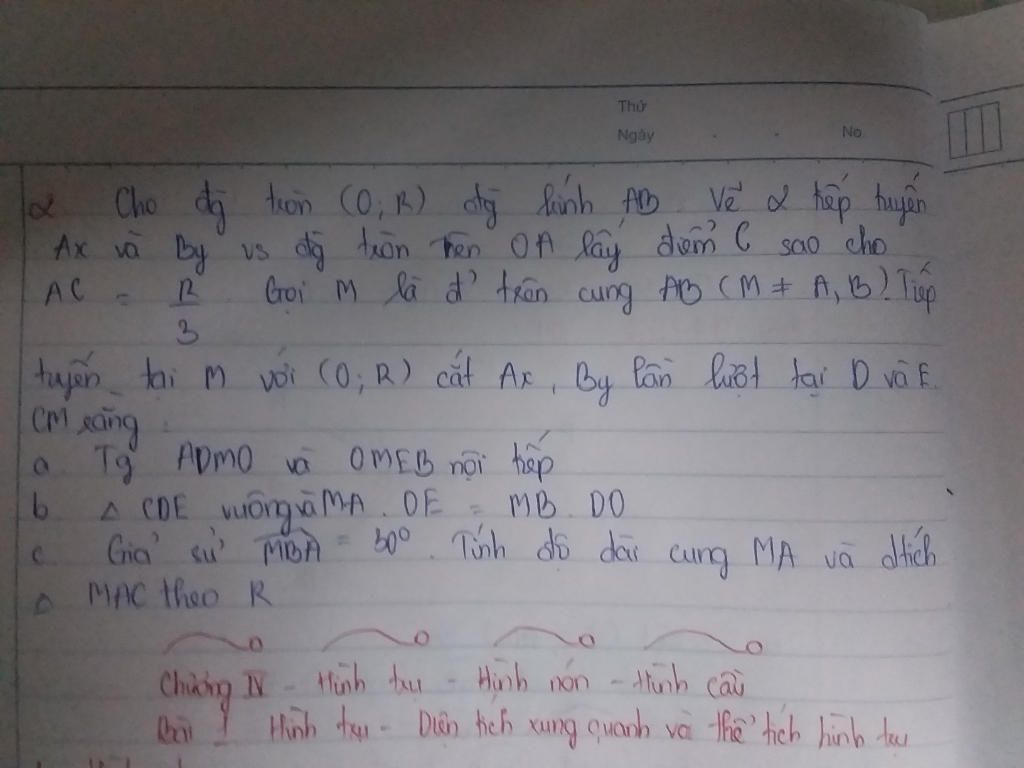 Thứ
Ngày . . No
2 Cho đg tròn (O; R) đg kính AB Vẽ 2 tiếp tuyến
Ax và By vs đg tròn trên OA lấy điểm C sao cho
AC = R/3 Gọi M là đ' trên cung AB (M ≠ A, B). Tiếp
tuyến tại M với (O; R) cắt Ax, By lần lượt tại D và E.
CM rằng :
a Tg ADMO và OMEB nội tiếp
b △ CDE vuông và MA . OE = MB . DO
c Giả sử MBA = 30°. Tính độ dài cung MA và dtích
△ MAC theo R
Chương IV - Hình trụ - Hình nón - Hình cầu
Bài 1 Hình trụ - Diện tích xung quanh và thể tích hình trụ